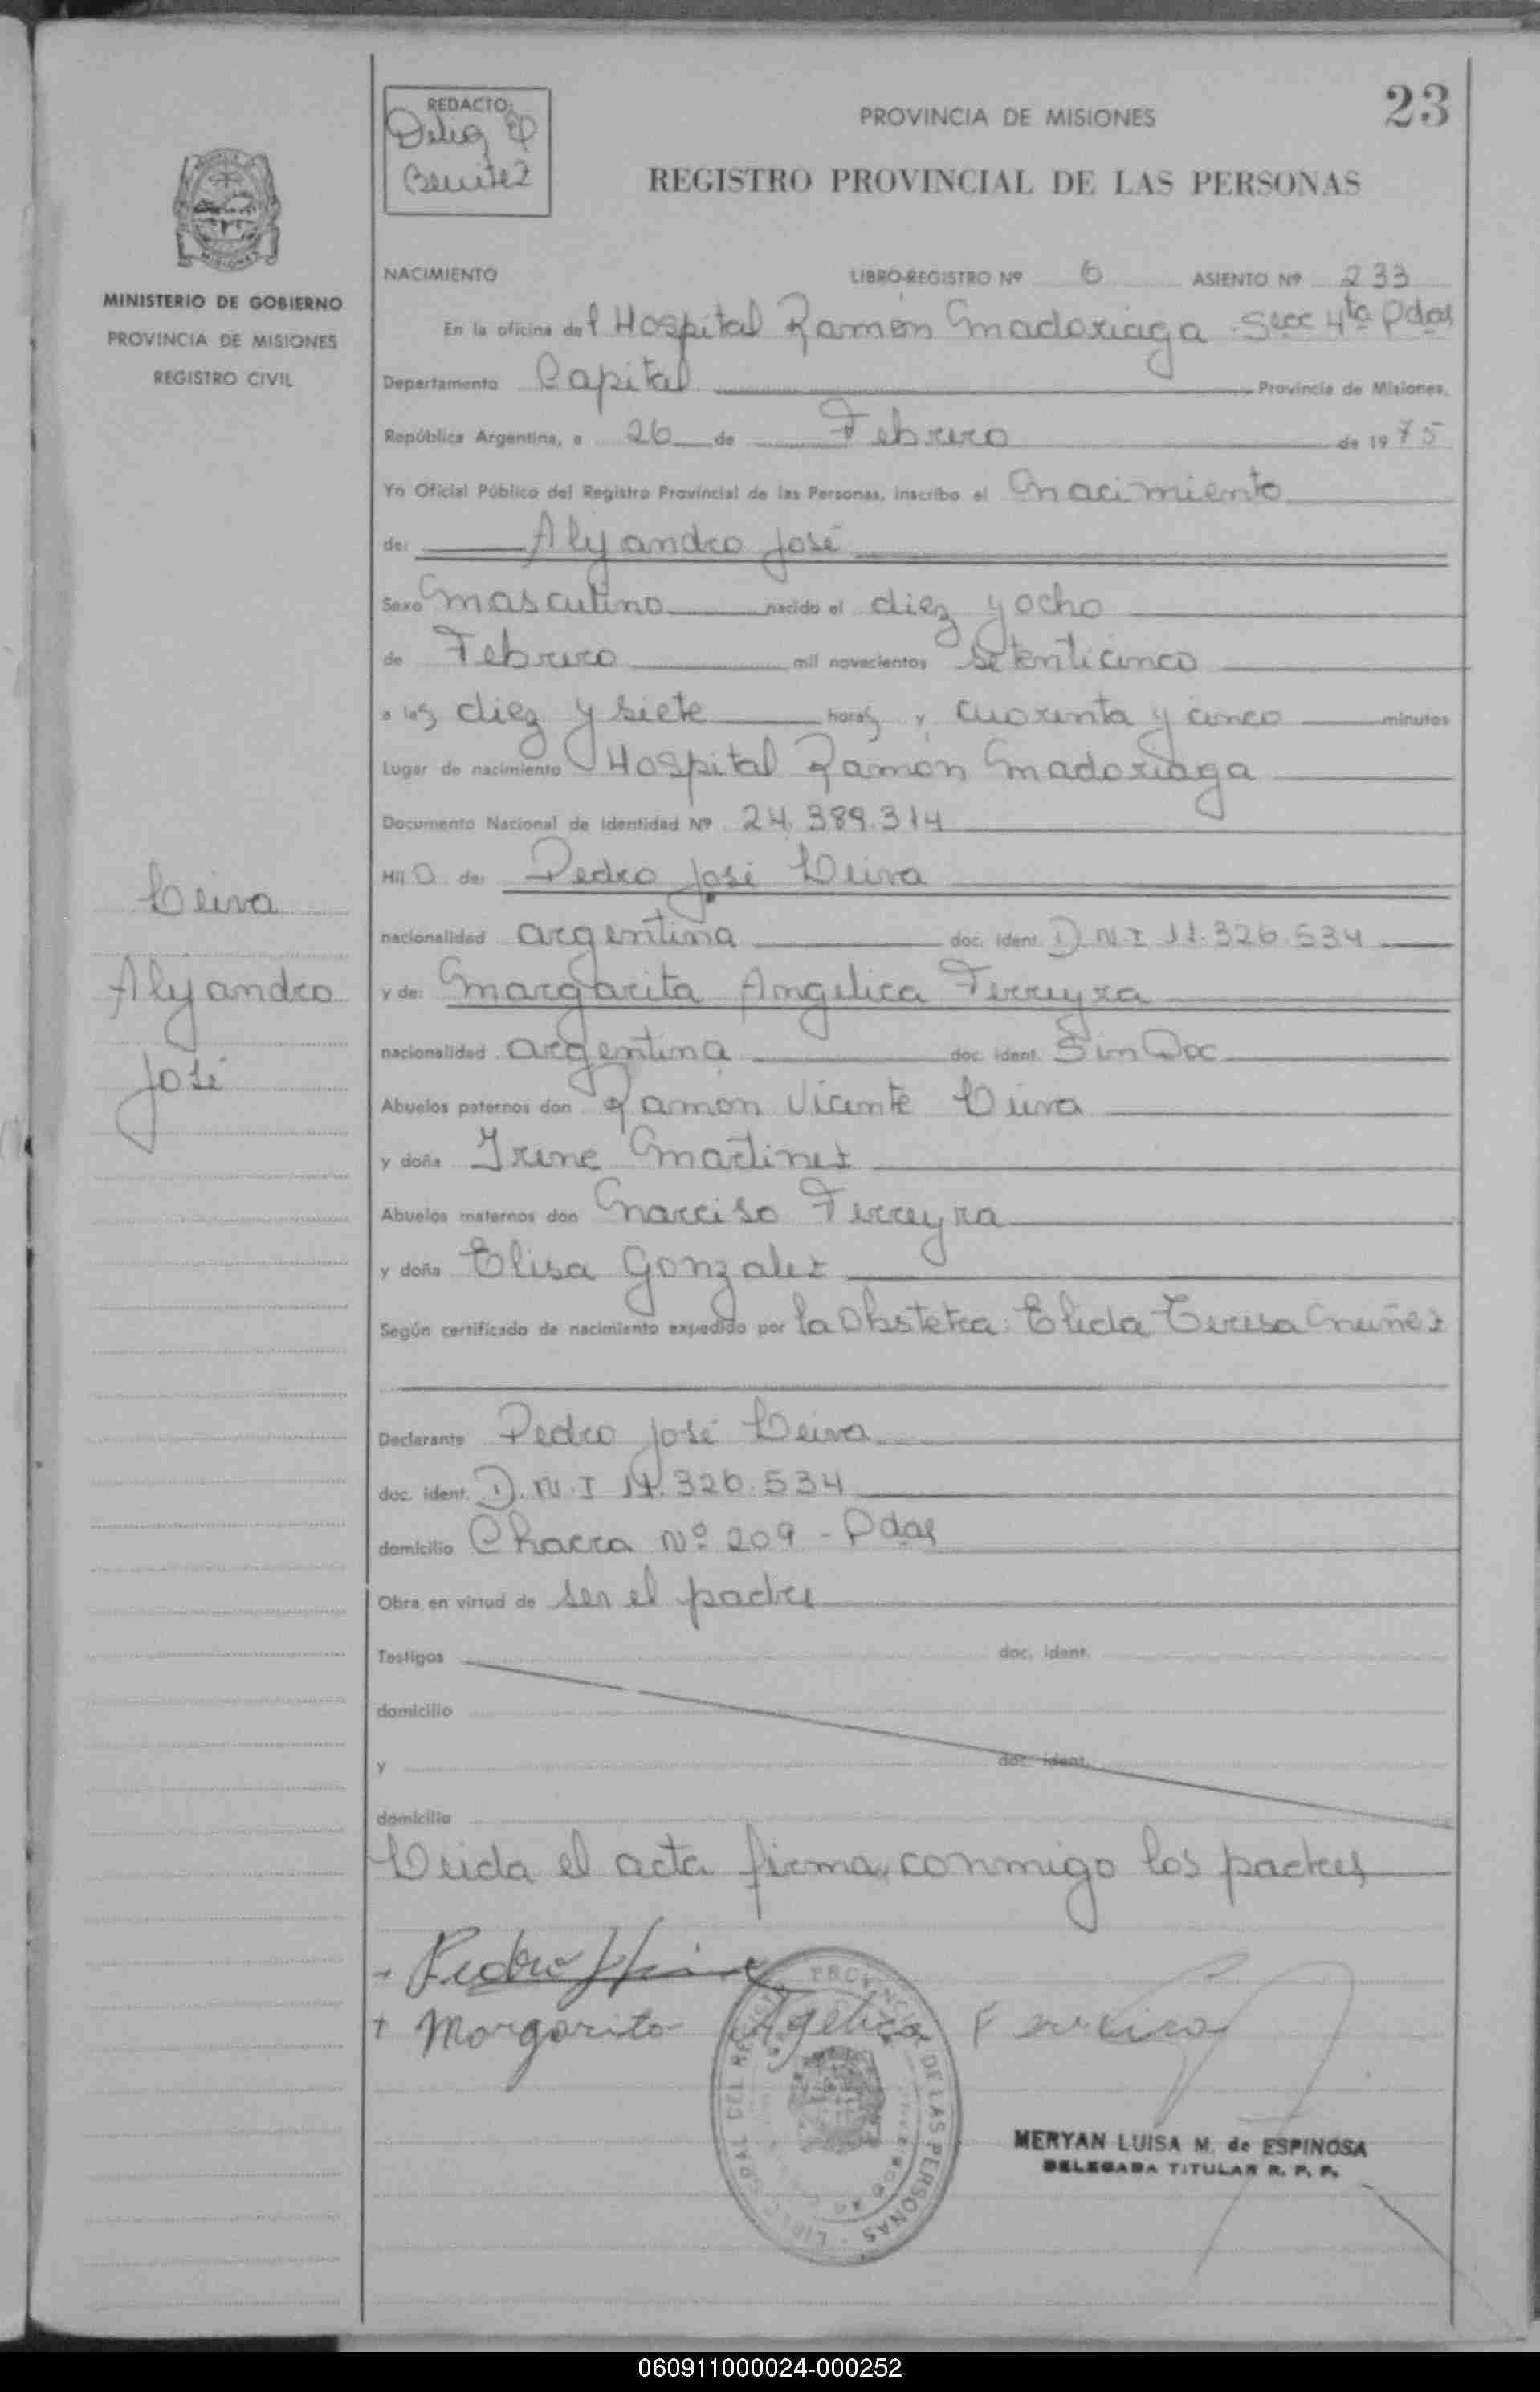 23
REDACTO:
Deleg
Benitez
PROVINCIA DE MISIONES
REGISTRO PROVINCIAL DE LAS PERSONAS
MINISTERIO DE GOBIERNO
PROVINCIA DE MISIONES
REGISTRO CIVIL
NACIMIENTO LIBRO-REGISTRO Nº 6 ASIENTO Nº 233
En la oficina del Hospital Ramón Madariaga - Secc 4ta Pdas
Departamento Capital Provincia de Misiones,
República Argentina, a 26 de Febrero de 1975
Yo Oficial Público del Registro Provincial de las Personas, inscribo el Nacimiento
de: Alejandro José
Sexo Masculino nacido el diez y ocho
de Febrero mil novecientos setenticinco
a las diez y siete horas y cuarenta y cinco minutos
Lugar de nacimiento Hospital Ramón Madariaga
Documento Nacional de Identidad Nº 24.389.314
Hijo de: Pedro José Leiva
nacionalidad argentina doc. ident. D.N.I 11.326.534
y de: Margarita Angelica Ferreyra
nacionalidad argentina doc. ident. Sin Doc
Abuelos paternos don Ramón Vicente Leiva
y doña Irene Martinez
Abuelos maternos don Narciso Ferreyra
y doña Elisa Gonzalez
Según certificado de nacimiento expedido por la Obstetra: Elida Teresa Nuñez
Declarante Pedro José Leiva
doc. ident. D.N.I 11.326.534
domicilio Chacra Nº 209 - Pdas
Obra en virtud de ser el padre
Testigos doc. ident.
domicilio
y doc. ident.
domicilio
Leida el acta firma conmigo los padres
Leiva
Alejandro
José
+ Pedro J Leiva
+ Margarita Agelica Ferreira
PROVINCIAL DE LAS PERSONAS
MERYAN LUISA M. de ESPINOSA
DELEGADA TITULAR R. P. P.
060911000024-000252